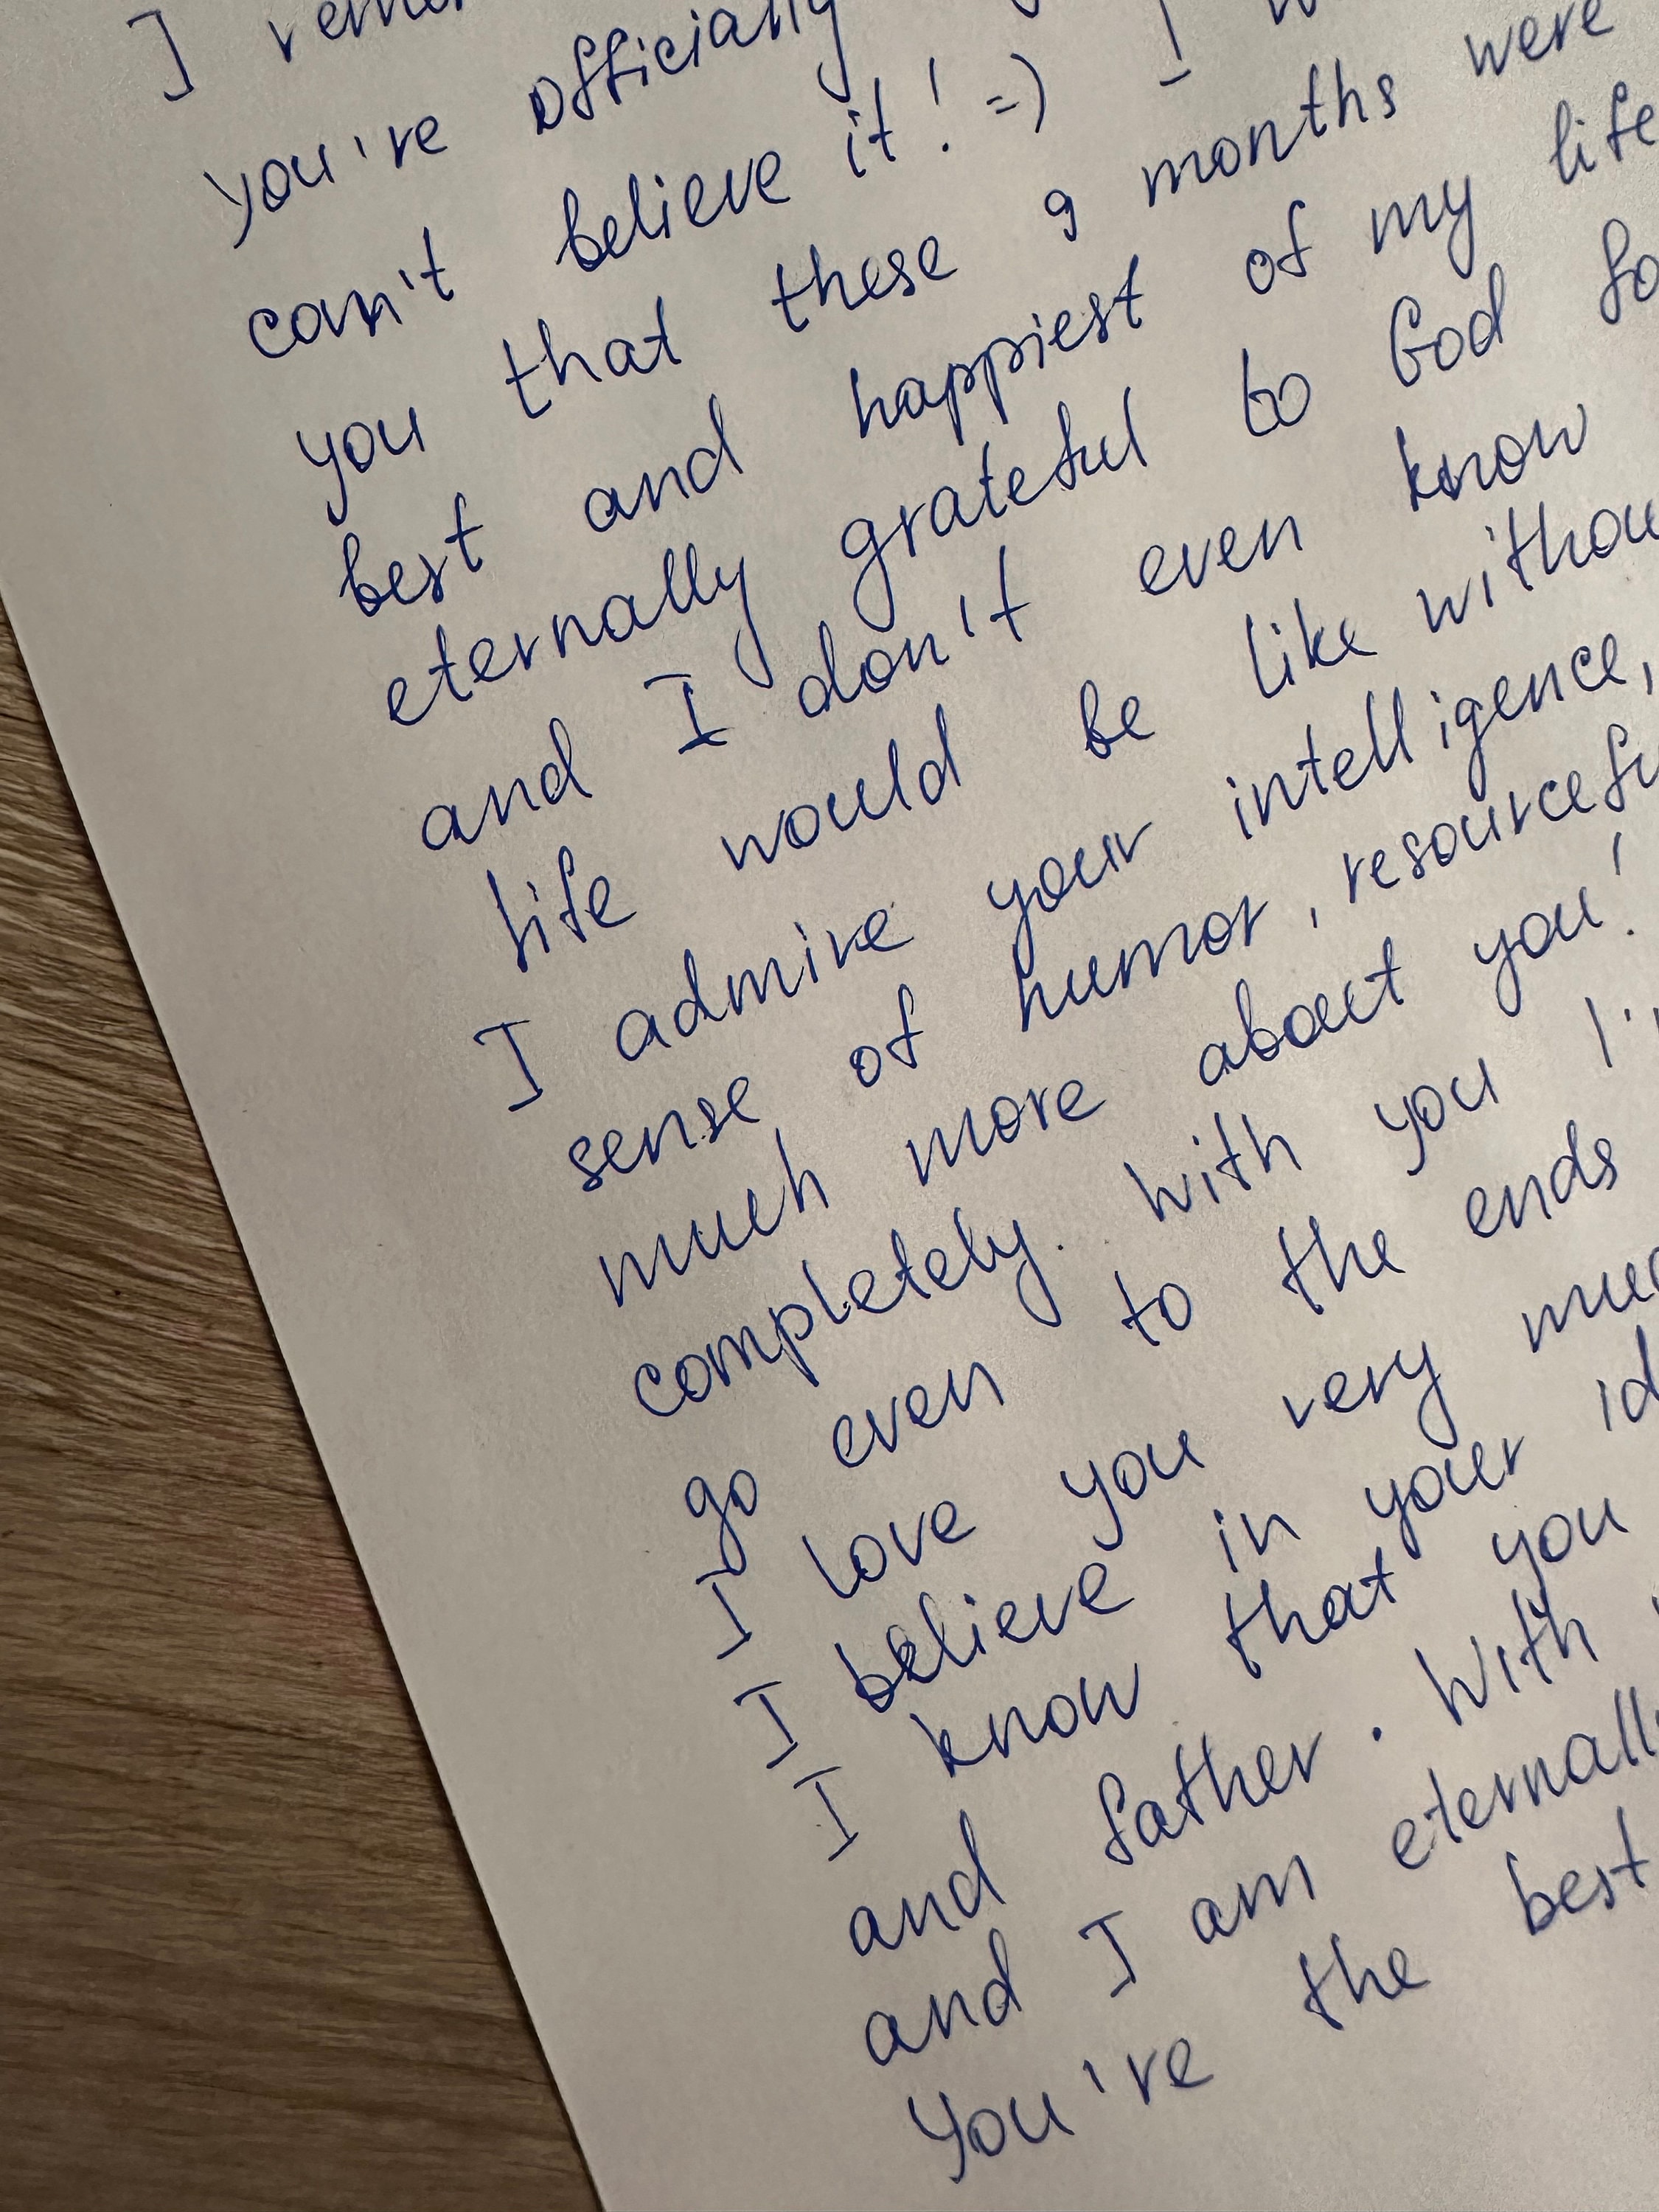 I
you're officially
can't believe it! =) I
you that these 9 months were
best and happiest of my life
eternally grateful to God
and I don't even know
life would be like
I admire your intelligence,
sense of humor,
much more about you!
completely. With you
go even to the ends
I love you very
I believe in your
I know that you
and father. With
and I am
You're the best